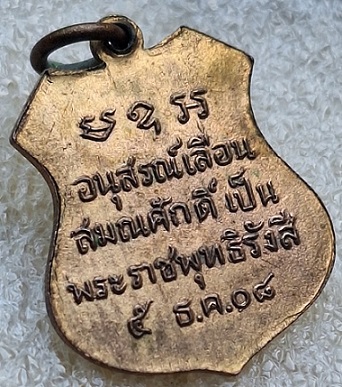 อนุสรณ์เลื่อน
สมณศักดิ์ เป็น
พระราชพุทธิรังสี
๕ ธ.ค.๐๘